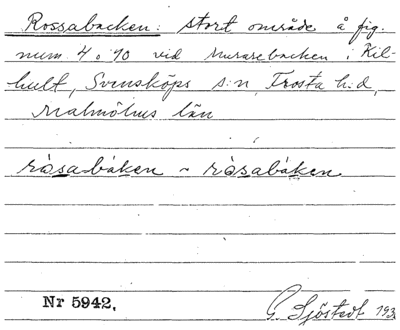 Rossabacken: stort område å fig.
num 4 o 10 vid Murarebacken i Kil-
hult, Svensköps s:n, Frosta h:d,
Malmöhus län
ròsabáken ~ ròsabáken
Nr 5942. G. Sjöstedt